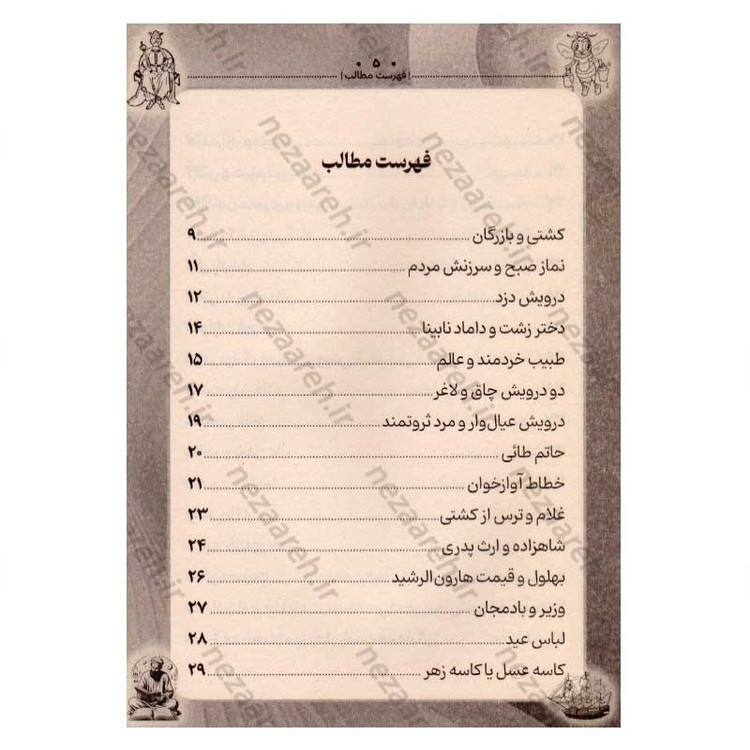 ۵
فهرست مطالب
فهرست مطالب
کشتی و بازرگان ۹
نماز صبح و سرزنش مردم ۱۱
درویش دزد ۱۲
دختر زشت و داماد نابینا ۱۴
طبیب خردمند و عالم ۱۵
دو درویش چاق و لاغر ۱۷
درویش عیال‌وار و مرد ثروتمند ۱۹
حاتم طائی ۲۰
خطاط آوازخوان ۲۱
غلام و ترس از کشتی ۲۳
شاهزاده و ارث پدری ۲۴
بهلول و قیمت هارون‌الرشید ۲۶
وزیر و بادمجان ۲۷
لباس عید ۲۸
کاسه عسل یا کاسه زهر ۲۹
nezaareh.ir